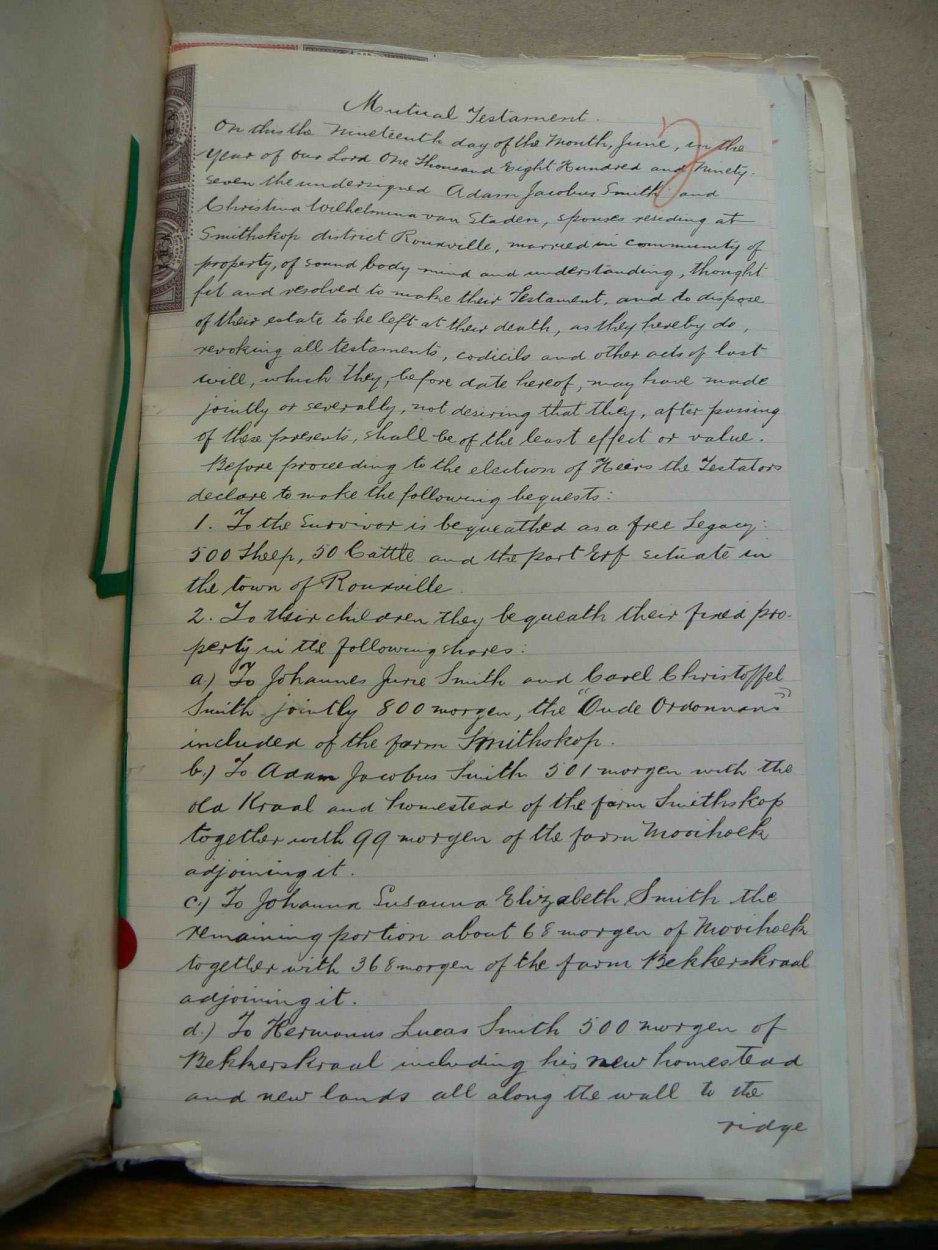 Mutual Testament.
On this the Nineteenth day of the Month, June, in the
Year of our Lord One Thousand Eight Hundred and Ninety-
seven the undersigned Adam Jacobus Smith and
Christina Wilhelmina van Staden, spouses residing at
Smithskop district Rouxville, married in community of
property, of sound body mind and understanding, thought
fit and resolved to make their Testament, and to dispose
of their estate to be left at their death, as they hereby do,
revoking all testaments, codicils and other acts of last
will, which they, before date hereof, may have made
jointly or severally, not desiring that they, after passing
of these presents, shall be of the least effect or value.
Before proceeding to the election of Heirs the Testators
declare to make the following bequests:
1. To the Survivor is bequeathed as a free Legacy:
500 Sheep, 50 Cattle and the part Erf situate in
the town of Rouxville.
2. To their children they bequeath their fixed pro-
perty in the following shares:
a) To Johannes Jurie Smith and Carel Christoffel
Smith jointly 800 morgen, the "Oude Ordonnans"
included of the farm Smithskop.
b.) To Adam Jacobus Smith 501 morgen with the
old Kraal and homestead of the farm Smithskop
together with 99 morgen of the farm Mooihoek
adjoining it.
c.) To Johanna Susanna Elizabeth Smith the
remaining portion about 68 morgen of Mooihoek
together with 368 morgen of the farm Bekkerskraal
adjoining it.
d.) To Hermanus Lucas Smith 500 morgen of
Bekkerskraal including his new homestead
and new lands all along the wall to the
ridge